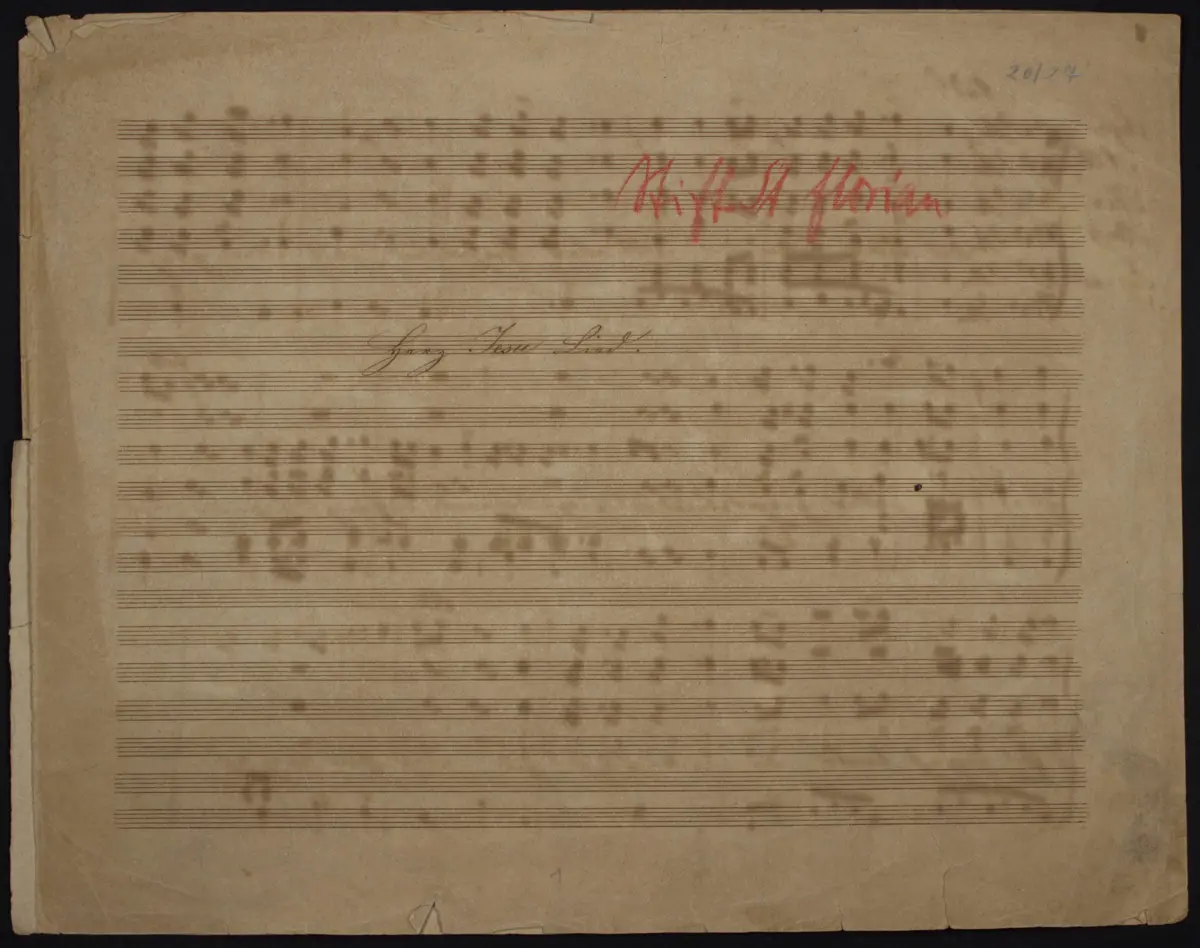 20/27
Stift St Florian
Herz Jesu Lied.